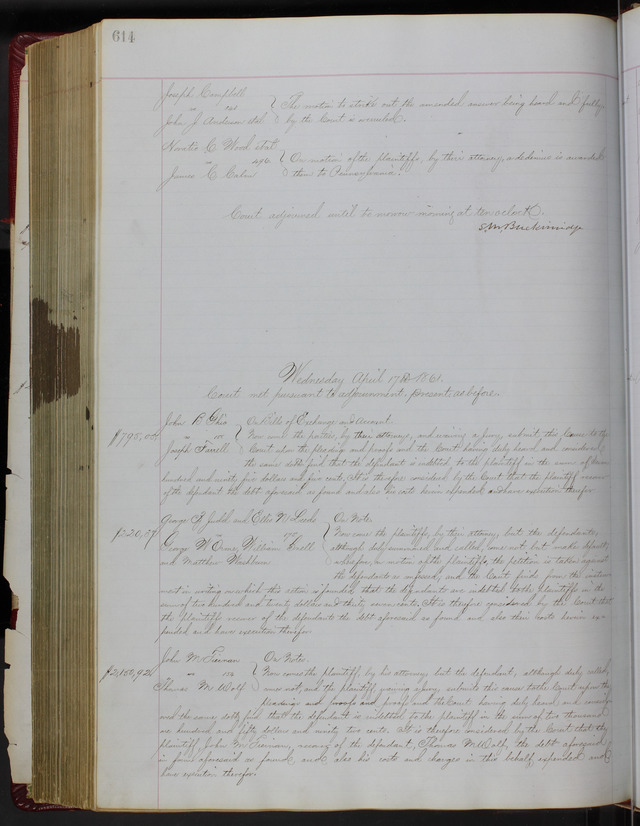 614
Joseph Campbell
" vs
John J. Anderson et al
The motion to strike out the amended answer being heard and fully
by the Court is overruled.
C. Wood et al
" 496
James C.
On motion of the plaintiffs, by their attorney, a dedimus is awarded
them to Pennsylvania.
Court adjourned until to morrow morning at ten oclock.
S. M. Breckinridge
Wednesday April 17th 1861.
Court met pursuant to adjournment. present as before.
John B. Ghio
" vs
Joseph Farrell
On Bills of Exchange and Account
$795,05
Now come the parties, by their attorneys, and waiving a jury submit this Cause to the
Court upon the pleadings and proofs and the Court having duly heard and considered
the same doth find that the defendant is indebted to the plaintiff in the sum of Seven
hundred and ninety five dollars and five cents. It is therefore considered by the Court that the plaintiff recover
of the defendant the debt aforesaid so found and also his costs herein expended, and have execution therefor
George S. Judd and
On Note
$220,37
George W. William
and Matthew
Now come the plaintiffs, by their attorney, but the defendants,
although duly summoned and called, come not but make default,
wherefore, on motion of the plaintiffs, the petition is taken against
the defendants as confessed, and the Court finds from the instru-
ment in writing on which this action is founded that the defendants are indebted to the plaintiffs in the
sum of two hundred and twenty dollars and thirty seven cents. It is therefore considered by the Court that
the plaintiffs recover of the defendants the debt aforesaid so found and also their costs herein ex-
pended, and have execution therefor
John M. Tiernan
" vs
Thomas M. Wolf
On Note.
$2,150,92
Now comes the plaintiff, by his attorney, but the defendant, although duly called,
comes not, and the plaintiff, waiving a jury, submits this cause to the Court upon the
pleadings and proofs and proofs and the Court having duly heard and considered
and the same doth find that the defendant is indebted to the plaintiff in the sum of two thousand
one hundred and fifty dollars and ninety two cents. It is therefore considered by the Court that the
plaintiff, John M. Tiernan, recover of the defendant, Thomas M. Wolf, the debt aforesaid
in form aforesaid so found, and also his costs and charges in this behalf expended and
have execution therefor.